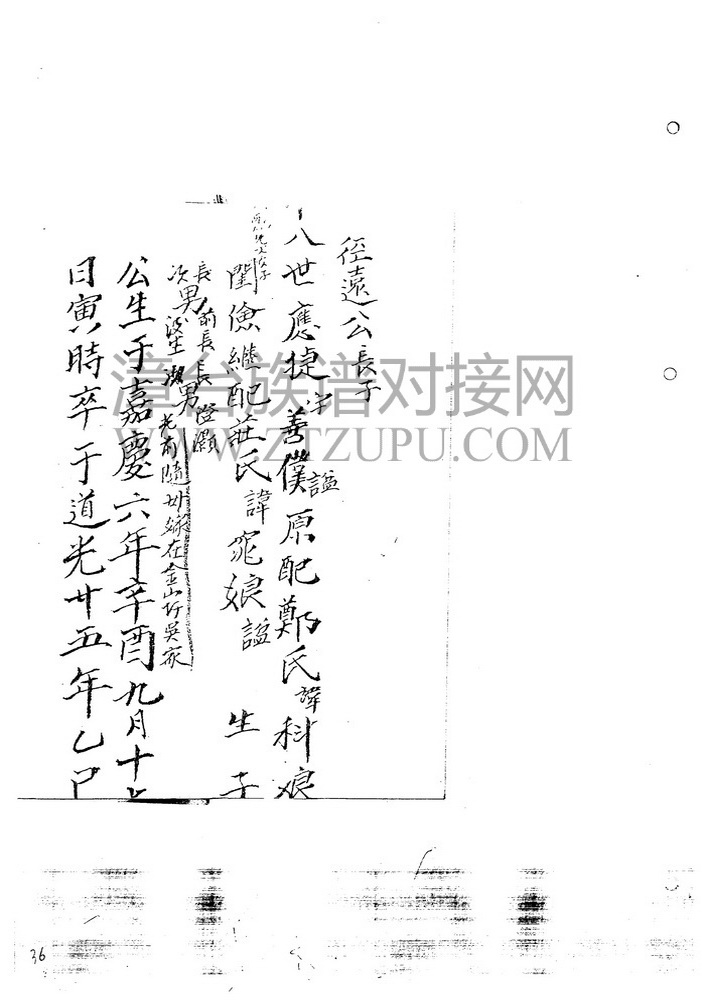 徑遠公長子
十八世應捷字善僕謚原配鄭氏諱科娘
閨儉繼配莊氏諱窕娘謚 生子
長男前長長澄瀨
次男波生
男
光前隨母嫁在金山圻吳家
公生于嘉慶六年辛酉九月十七
日寅時卒于道光廿五年乙巳
漳台族谱对接网
WWW.ZTZUPU.COM
36